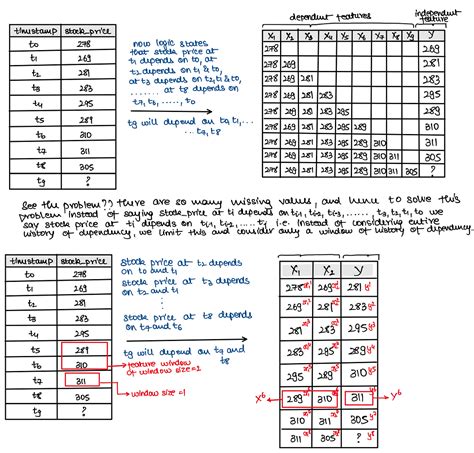 timestamp stock_price
t0 278
t1 269
t2 281
t3 283
t4 295
t5 289
t6 310
t7 311
t8 305
t9 ?
now logic states
that stock price at
t1 depends on t0, at
t2 depends on t1 & t0,
at t3 depends on t2, t1 & t0,
....... at t8 depends on
t7, t6, ....., t0
t9 will depend on t0, t1, ...
... t7, t8
dependent features
independent
feature
X1 X2 X3 X4 X5 X6 X7 X8 X9 y
278 269
278 269 281
278 269 281 283
278 269 281 283 295
278 269 281 283 295 289
278 269 281 283 295 289 310
278 269 281 283 295 289 310 311
278 269 281 283 295 289 310 311 305
278 269 281 283 295 289 310 311 305 ?
See the problem?? there are so many missing values, and hence to solve this
problem instead of saying stock_price at ti depends on ti-1, ti-2, ti-3, ......, t3, t2, t1, t0 we
say stock price at ti depends on ti-1, ti-2, .... ti, i.e. instead of considering entire
history of dependency, we limit this and consider only a window of history of dependency.
timestamp stock_price
t0 278
t1 269
t2 281
t3 283
t4 295
t5 289
t6 310
t7 311
t8 305
t9 ?
stock price at t2 depends
on t0 and t1
stock price at t3 depends
on t2 and t1
stock price at t8 depends
on t7 and t6
t9 will depend on t7 and
t8
feature window
of window size=1
window size=1
X1 X2 y
278 x1 269 x1 281 y1
269 x2 281 x2 283 y2
281 x3 283 x3 295 y3
283 x4 295 x4 289 y4
295 x5 289 x5 310 y5
289 x6 310 x6 311 y6
310 x7 311 x7 305 y7
311 x8 305 x8 ? y8
X6
y6